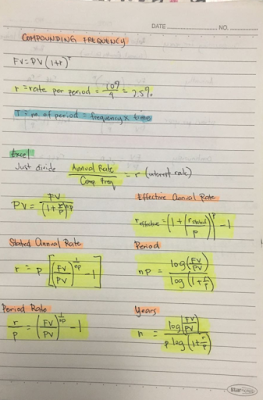 DATE NO.
COMPOUNDING FREQUENCY
FV = PV (1+r)^T
r = rate per period = 10%/4 = 2.5%
T = no. of period = frequency x time
Excel
Just divide Annual Rate / Comp Freq = r (interest rate)
PV = FV / (1 + r/p)^np
Effective Annual Rate
r effective = (1 + (r stated / p))^p - 1
Stated Annual Rate
r = p [(FV/PV)^(1/np) - 1]
Period
np = log(FV/PV) / log(1 + r/p)
Period Rate
r/p = (FV/PV)^(1/np) - 1
Years
n = log(FV/PV) / p log(1 + r/p)